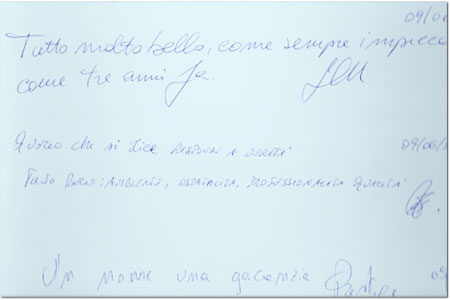 09/0
Tutto molto bello, come sempre impecca
come tre anni fa.
Quello che si dice
09/06/
Tutto Bello: AMBIENTI, OSPITALITA, PROFESSIONALITA QUALITA'
Un nome una garanzia
09